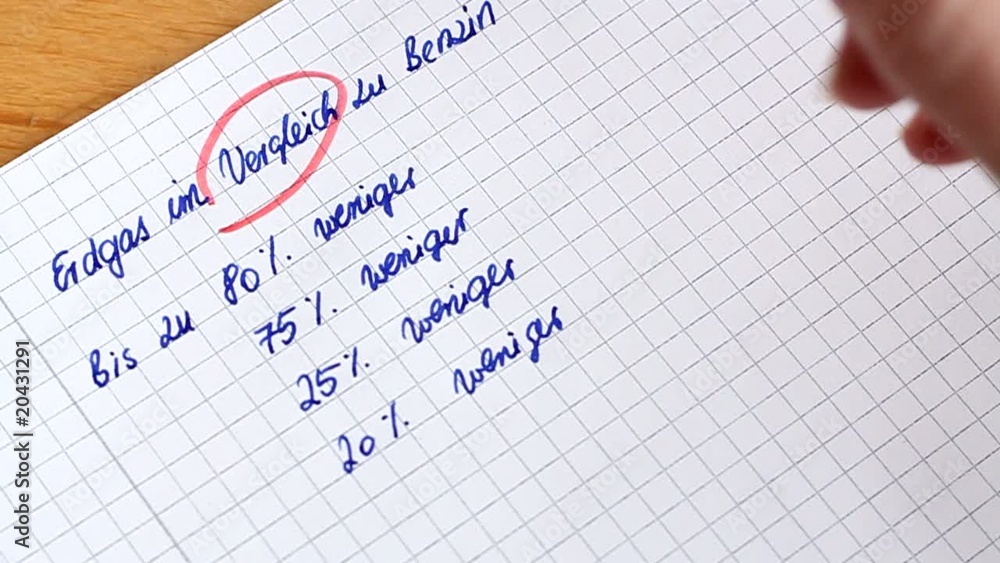 Erdgas im Vergleich zu Benzin
Bis zu 80% weniger
75% weniger
25% weniger
20% weniger
Adobe Stock | #20431291